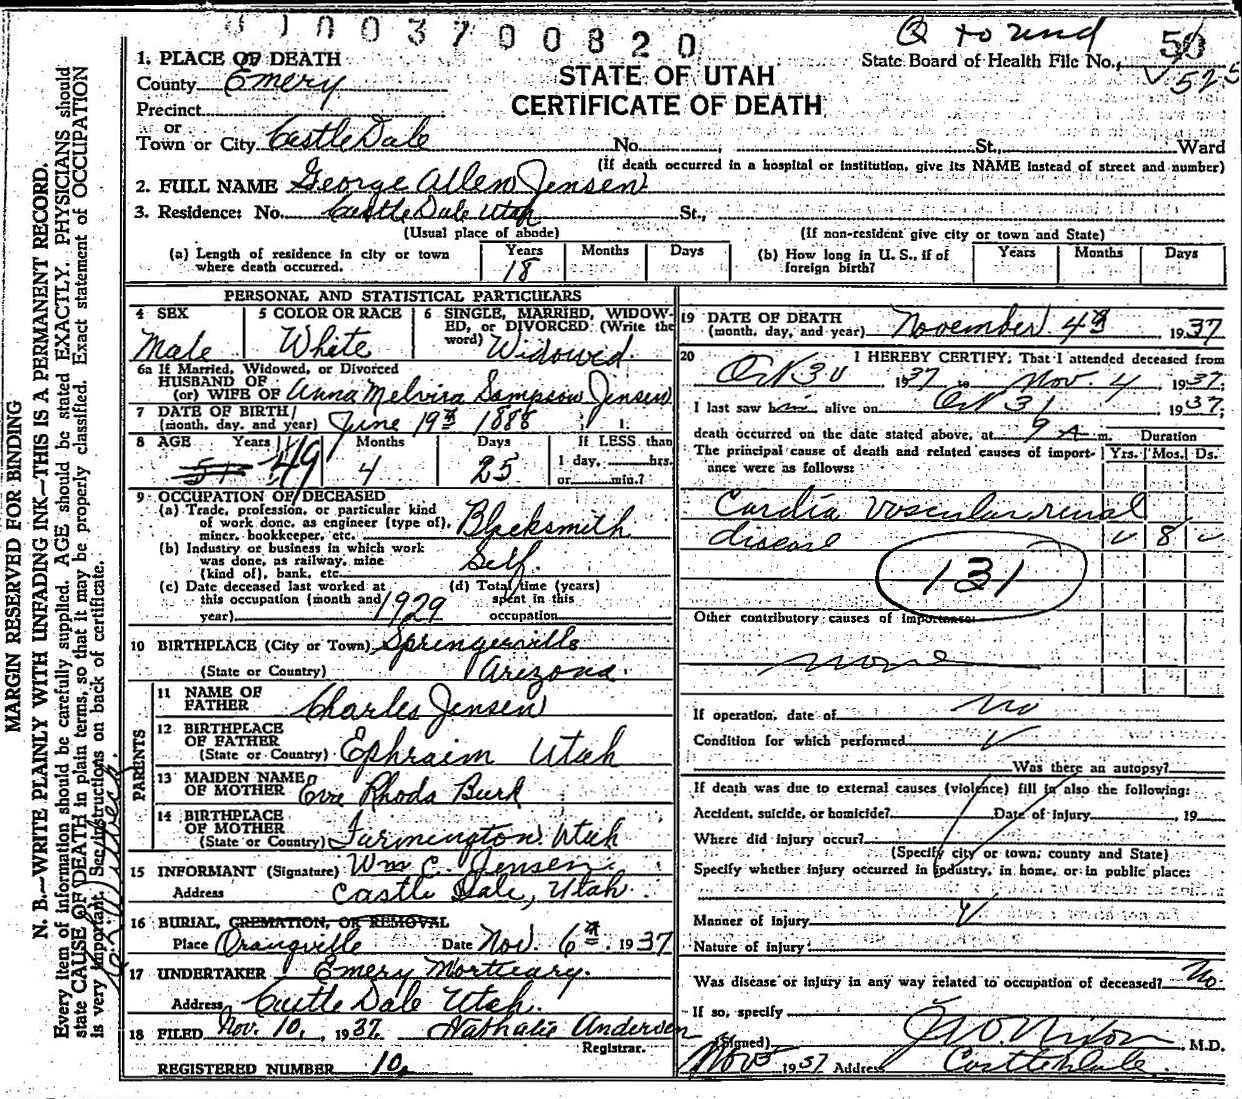 0 1 0 0 3 7 0 0 8 2 0
State Board of Health File No. 525
STATE OF UTAH
CERTIFICATE OF DEATH
1. PLACE OF DEATH
County Emery
Precinct
or
Town or City Castle Dale No. St., Ward
(If death occurred in a hospital or institution, give its NAME instead of street and number)
2. FULL NAME George Allen Jensen
3. Residence: No. Castle Dale Utah St.,
(Usual place of abode) (If non-resident give city or town and State)
(a) Length of residence in city or town where death occurred. Years 18 Months Days
(b) How long in U. S., if of foreign birth? Years Months Days
PERSONAL AND STATISTICAL PARTICULARS
4 SEX Male
5 COLOR OR RACE White
6 SINGLE, MARRIED, WIDOWED, or DIVORCED (Write the word) Widowed.
6a If Married, Widowed, or Divorced
HUSBAND OF
(or) WIFE OF Anna Melvira Sampson Jensen
7 DATE OF BIRTH
(month, day, and year) June 19th 1888
8 AGE Years 51 49 Months 4 Days 25 If LESS than
1 day, hrs.
or min.?
9 OCCUPATION OF DECEASED
(a) Trade, profession, or particular kind
of work done, as engineer (type of),
miner, bookkeeper, etc. Blacksmith
(b) Industry or business in which work
was done, as railway, mine
(kind of), bank, etc. Self.
(c) Date deceased last worked at
this occupation (month and
year) 1929
(d) Total time (years)
spent in this
occupation
10 BIRTHPLACE (City or Town) Springerville
(State or Country) Arizona.
PARENTS
11 NAME OF
FATHER Charles Jensen
12 BIRTHPLACE
OF FATHER
(State or Country) Ephraim Utah
13 MAIDEN NAME
OF MOTHER Eva Rhoda Burk
14 BIRTHPLACE
OF MOTHER
(State or Country) Farmington Utah
15 INFORMANT (Signature) Wm C. Jensen.
Address Castle Dale, Utah.
16 BURIAL, CREMATION, OR REMOVAL
Place Orangville Date Nov. 6th. 1937
17 UNDERTAKER Emery Mortuary.
Address Castle Dale Utah.
18 FILED Nov. 10, 1937. Nathalie Andersen
Registrar.
REGISTERED NUMBER 10.
19 DATE OF DEATH
(month, day, and year) November 4th 1937
20 I HEREBY CERTIFY, That I attended deceased from
Oct 30 1937 to Nov. 4, 1937;
I last saw him alive on Oct 31 1937;
death occurred on the date stated above, at 9 A m. Duration
The principal cause of death and related causes of importance were as follows: Yrs. Mos. Ds.
Cardia vascular renal
disease 8
131
Other contributory causes of importance:
none
If operation, date of no
Condition for which performed
Was there an autopsy?
If death was due to external causes (violence) fill in also the following:
Accident, suicide, or homicide? Date of injury , 19
Where did injury occur?
(Specify city or town, county and State)
Specify whether injury occurred in industry, in home, or in public place:
Manner of Injury
Nature of injury
Was disease or injury in any way related to occupation of deceased? No.
If so, specify
(Signed) J W Nixon, M.D.
Nov 5 1937 Address Castle Dale.
MARGIN RESERVED FOR BINDING
N. B.—WRITE PLAINLY WITH UNFADING INK—THIS IS A PERMANENT RECORD.
Every item of information should be carefully supplied. AGE should be stated EXACTLY. PHYSICIANS should
state CAUSE OF DEATH in plain terms, so that it may be properly classified. Exact statement of OCCUPATION
is very important. See instructions on back of certificate.